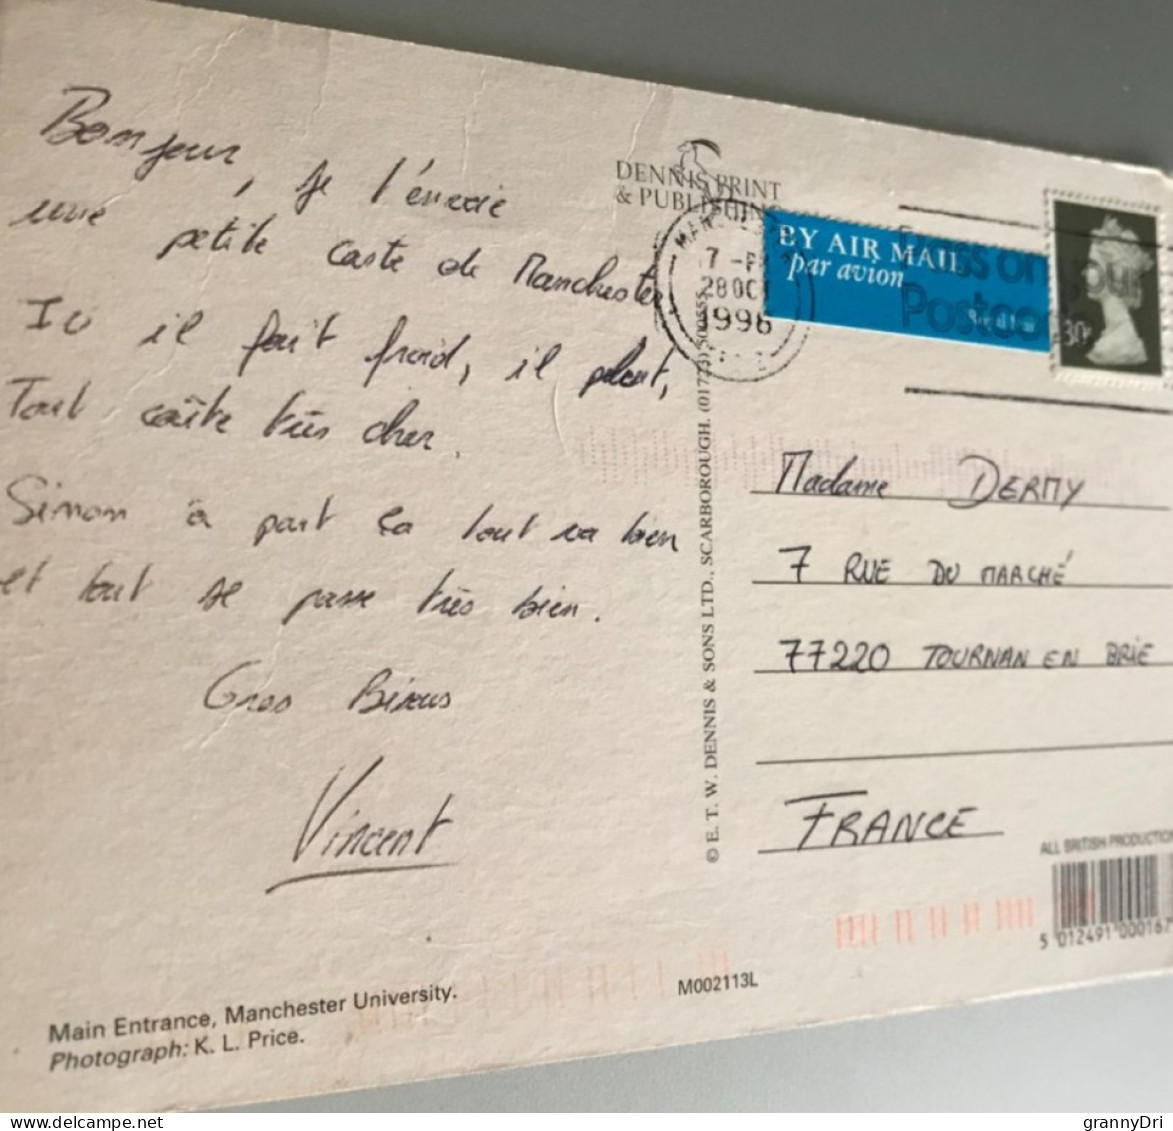 Bonjour, je t'envoie
une petite carte de Manchester.
Ici il fait froid, il pleut,
Tout coûte très cher.
Sinon à part ça tout va bien
et tout se passe très bien.
Gros Bisous
Vincent
Main Entrance, Manchester University.
Photograph: K. L. Price.
M002113L
DENNIS PRINT
& PUBLISHING
© E. T. W. DENNIS & SONS LTD., SCARBOROUGH. (01723) 500555
28 OC
1996
BY AIR MAIL
par avion
Royal Mail
Pass on
your
Postcode
30
Madame DERMY
7 RUE DU MARCHÉ
77220 TOURNAN EN BRIE
FRANCE
ALL BRITISH PRODUCTION
5 012491 000167
grannyDri